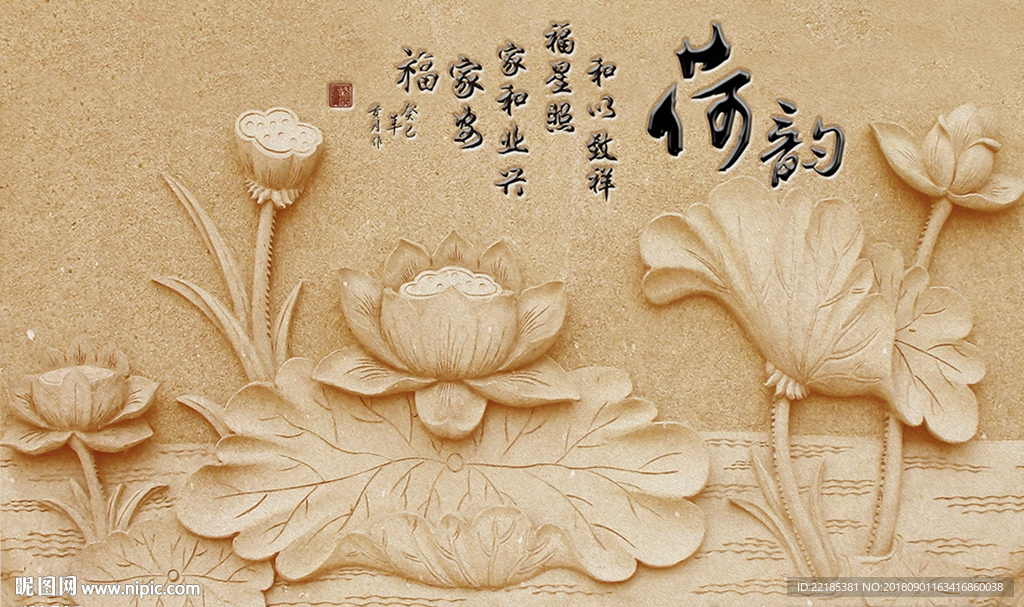 荷韵
和以致祥
福星照
家和业兴
家安
福
癸巳
年
昵图网 www.nipic.com
ID:22185381 NO:20180901163416860038